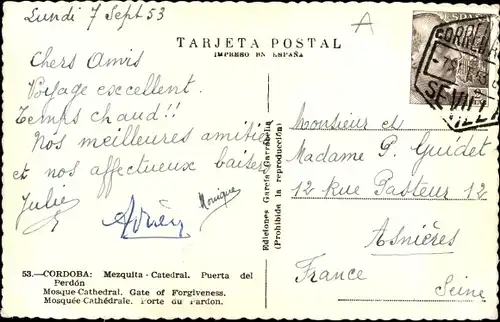 Lundi 7 Sept 53
A
TARJETA POSTAL
IMPRESO EN ESPAÑA
ESPAÑA
CORREO
SEVILLA
Chers Amis
Voyage excellent.
Temps chaud!!
Nos meilleures amitiés
et nos affectueux baisers
Julie
Monique
Ediciones García Garrabella
(Prohibida la reproducción)
Monsieur et
Madame P. Guidet
12 Rue Pasteur 12
Asnières
France
Seine
53.—CORDOBA: Mezquita - Catedral. Puerta del
Perdón
Mosque-Cathedral. Gate of Forgiveness.
Mosquée-Cathédrale. Porte du Pardon.